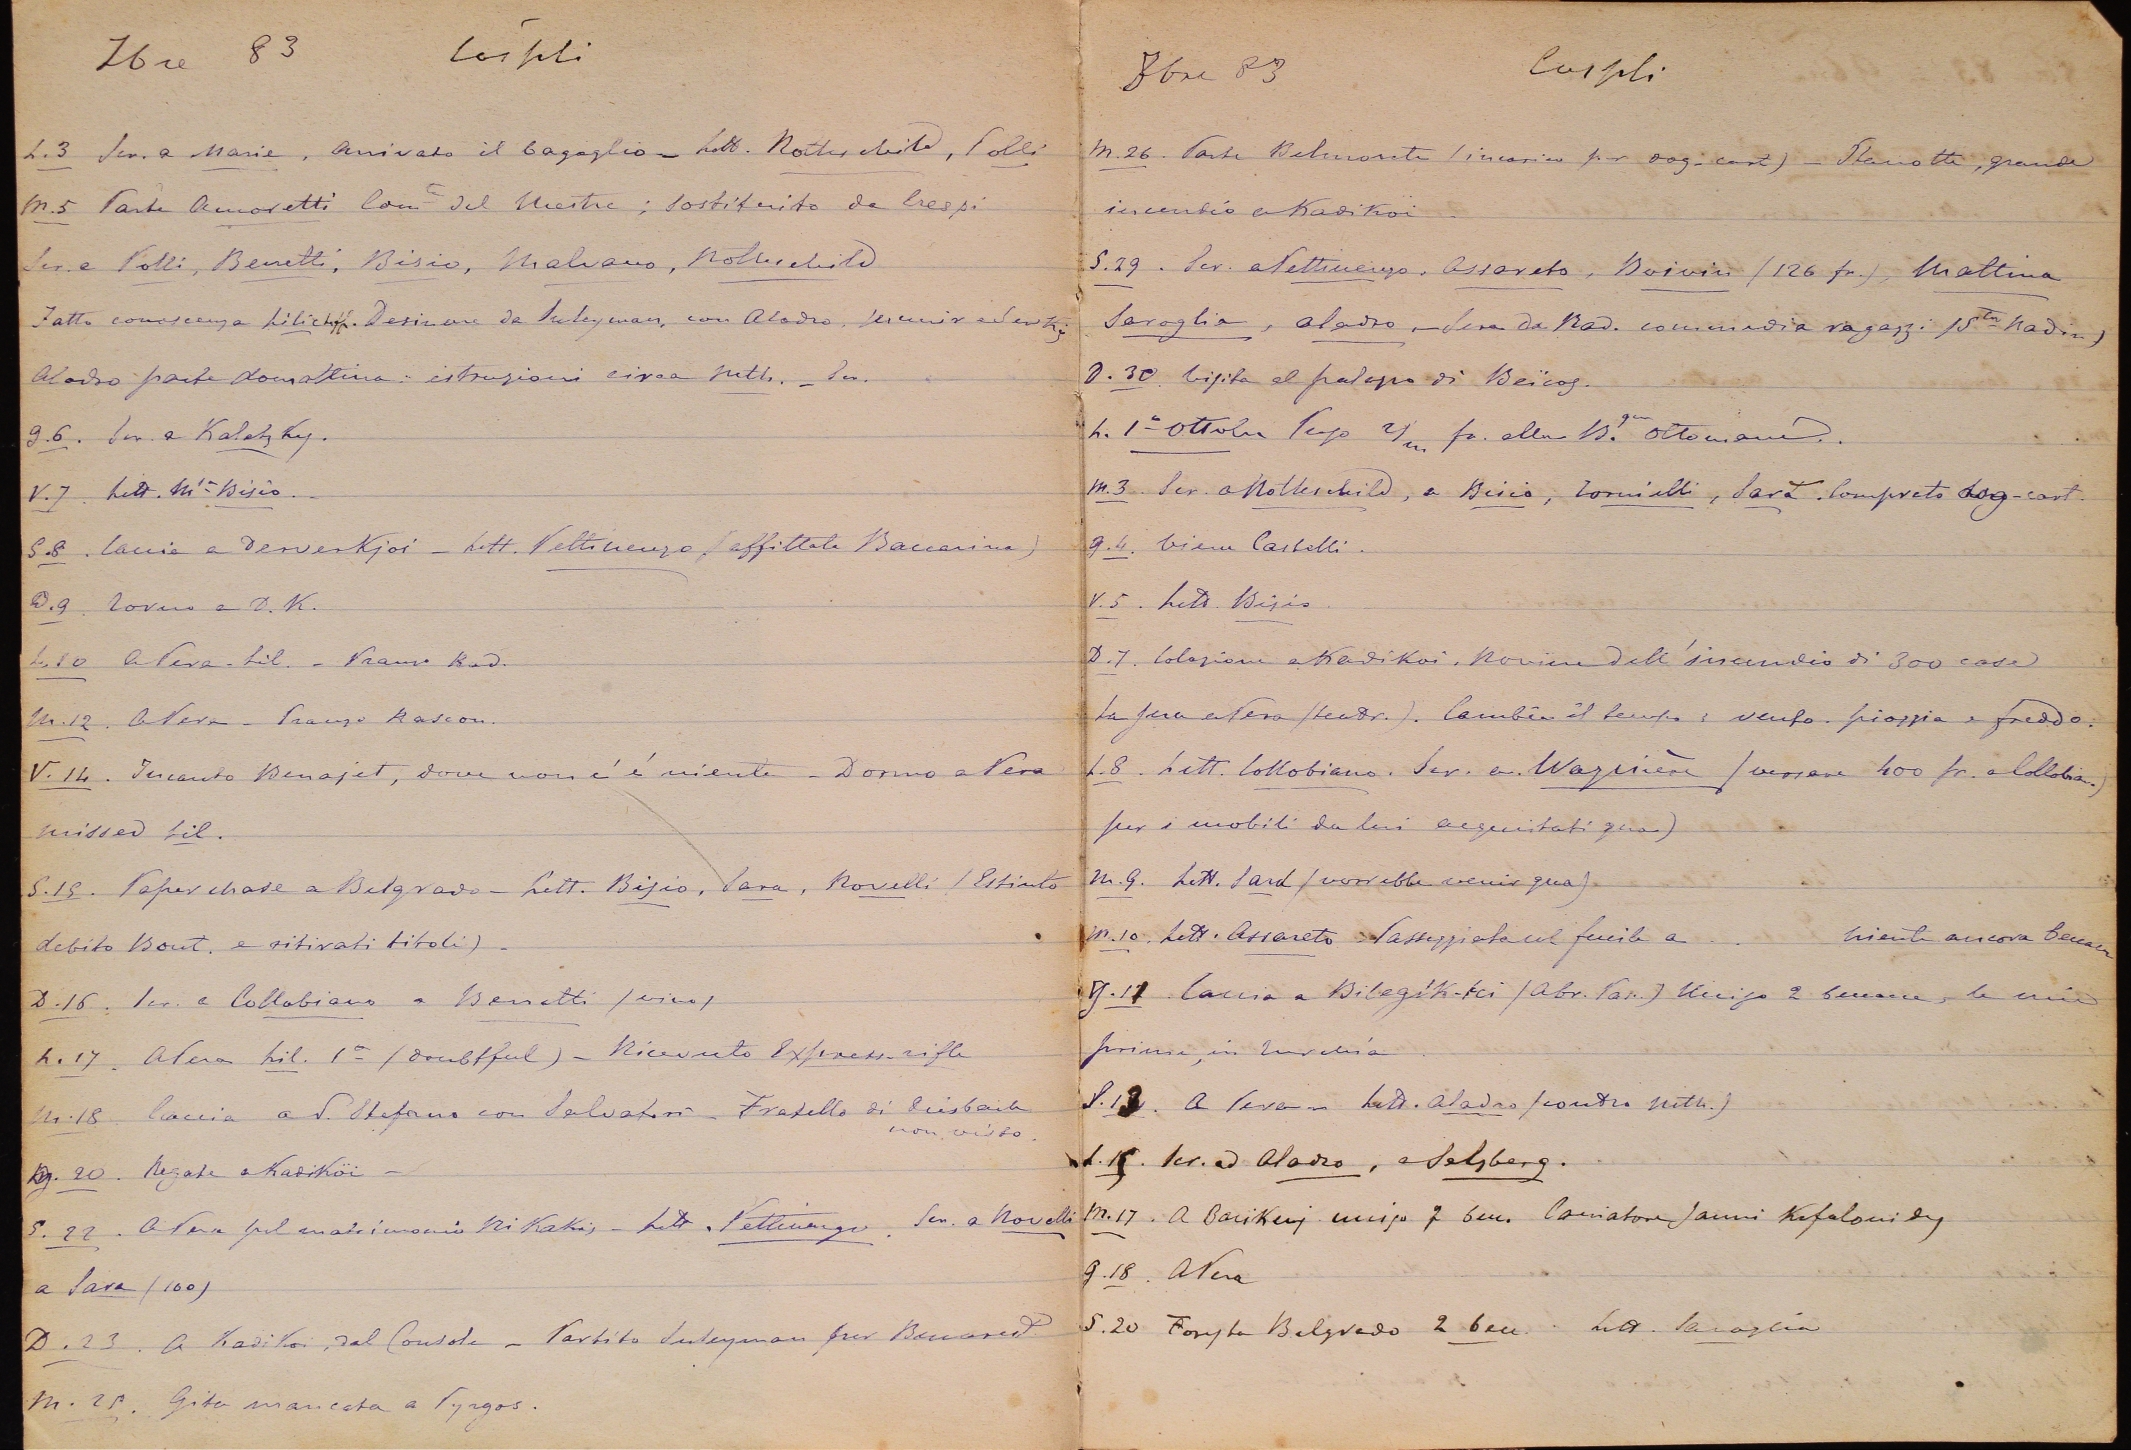 7bre 83 Cospli
L.3 Scr. a Marie, arrivato il bagaglio - Lett. Rothschild, Polli
M.5 Parte Amoretti Com.te del Mestre ; sostituito da Crespi
Scr. a Polli, Benetti, Bisio, Malvano, Rothschild
Fatto conoscenza Desinare da Suleyman, con Aladro,
Aladro parte domattina : istruzioni circa Mth. - Scr.
G.6. Scr. a Kaletzky.
V.7. Lett. M.r Bisio.
S.8. Caccia a Derverkjoi - Lett. Pettinengo (affittata Baccarina)
D.9. Torno a D.K.
L.10 A Pera - Lil. - Pranzo Rad.
M.12. A Pera - Pranzo Rascon.
V.14. Incanto Benajet, dove non c'è niente - Dormo a Pera
missed Lil.
S.15. Paperchase a Belgrado - Lett. Bisio, Sara, Novelli (Estinto
debito Bout. e ritirati titoli) -
D.16. Scr. a Collobiano a Benetti (vino)
L.17. A Pera Lil. 1a (doubtful) - Ricevuto Express-rifle
M.18 Caccia a S. Stefano con Salvatori - Fratello di Diesbach
non visto.
G.20. Regate a Kadiköi -
S.22. A Pera pel matrimonio - Lett. Pettinengo. Scr. a Novelli
a Sara (100)
D.23. A Kadikoi, dal Console - Partito Suleyman per
M.25. Gita mancata a Pyrgos.
7bre 83 Cospli
M.26. Parte Belmonte (incarico per dog-cart) - Stanotte, grande
incendio a Kadiköi
S.29. Scr. a Pettinengo, Assareto, Boivin (126 fr.), Mattina
Saroglia, Aladro - Sera da Rad. commedia ragazzi
D.30. Visita al palazzo di Beïcos.
L. 1o Ottobre Pago 2/m fr. alla B. Ottomane.
M.3. Scr. a Rothschild, a Bisio, Tornielli, Sara. Comprato dog-cart.
G.4. Viene Castelli.
V.5. Lett. Bisio.
D.7. Colazione a Kadikoi. Rovine dell'incendio di 300 case
La sera a Pera (teatr.). Cambia il tempo : vento. pioggia e freddo.
L.8. Lett. Collobiano. Scr. a. Wagnière (versare 400 fr. a Collobiano)
per i mobili da lui acquistati qua)
M.9. Lett. Sara (vorrebbe venir qua)
M.10. Lett. Assareto - Passeggiata col fucile a . . niente ancora beccacce
G.11 Caccia a (Abr. Pas.) Uccido 2 beccacce, le mie
prime, in Turchia
S.13. A Pera - Lett. Aladro (contro Mth.)
L.15. Scr. ad Aladro, a Salzberg.
M.17. A uccido 7 becc. Cacciatore Janni
G.18. A Pera
S.20 Foresta Belgrado 2 becc. Lett. Saroglia